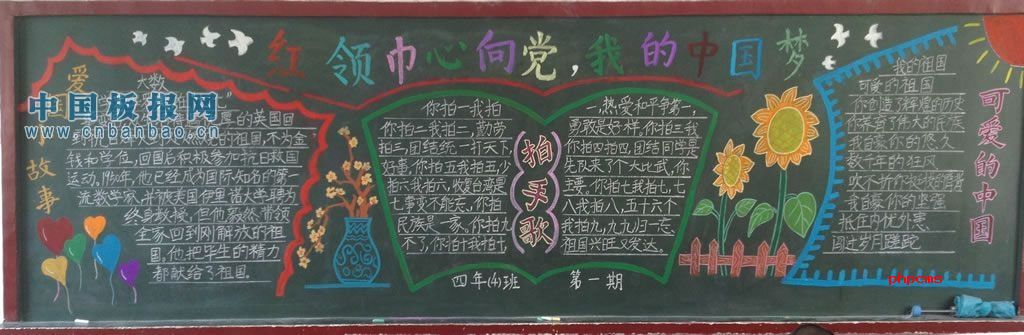 红领巾心向党,我的中国梦
爱国小故事
中国板报网
www.cnbanbao.cn
大数
厚的英国回
的祖国,不为金
钱和学位,回国后积极参加抗日救国
运动。1950年,他已经成为国际知名的第一
流数学家,并被美国伊里诺大学聘为
终身教授,但他毅然带领
全家回到刚解放的祖
国,他把毕生的精力
都献给了祖国。
你拍一我拍
你拍二我拍二,勤劳
拍三,团结统一打天下,
你拍五我拍五,少
拍六我拍六,收复台湾是
七事变不能忘,你拍
民族是一家,你拍九
不了,你拍十我拍十,
四年(4)班
拍手歌
一,热爱和平争第一,
勇敢是好样,你拍三我
你拍四拍四,团结同学是
先队来了个大比武,你
主要,你拍七我拍七,七
八我拍八,五十六个
我拍九,九九归一忘
祖国兴旺又发达。
第一期
我的祖国
可爱的祖国
你创造了辉煌的历史
你养育了伟大的民族
我自豪你的悠久
数千年的狂风
吹不折你挺拔的脊背
我自豪你的坚强
抵住内忧外患
闯过岁月蹉跎
可爱的中国
phpcms